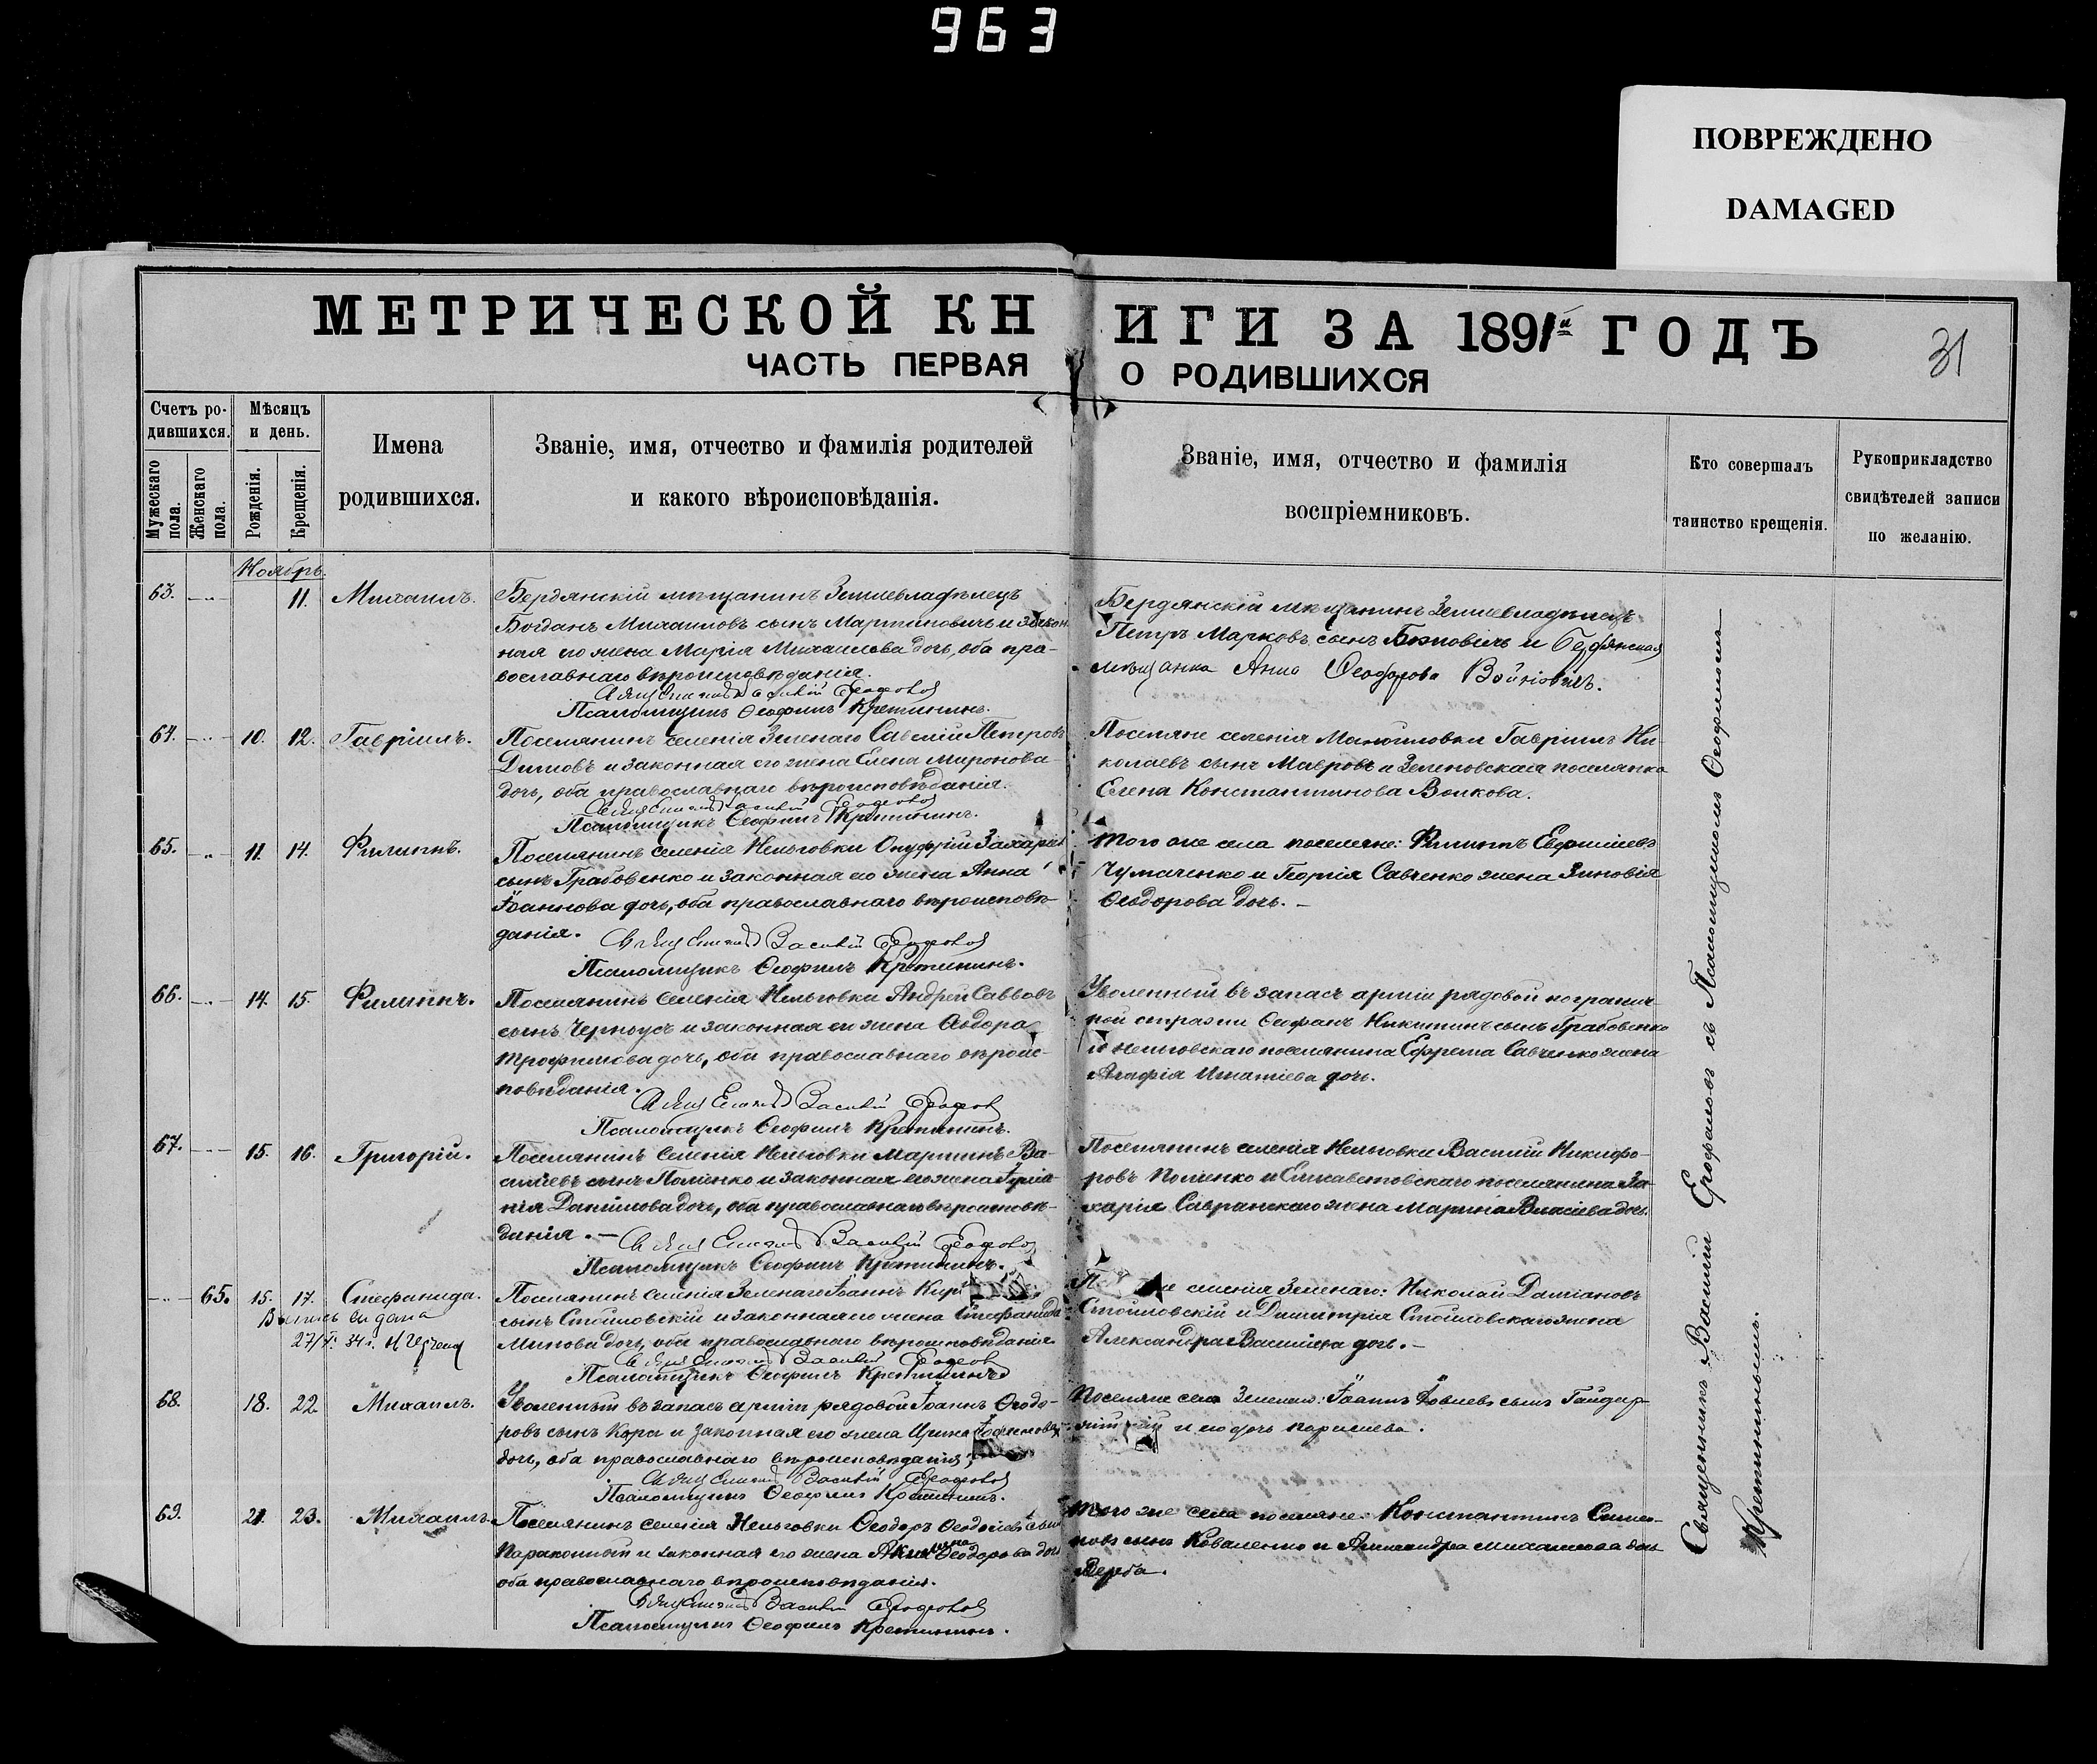 963
ПОВРЕЖДЕНО
DAMAGED
МЕТРИЧЕСКОЙ КНИГИ ЗА 1891й ГОДЪ
31
ЧАСТЬ ПЕРВАЯ О РОДИВШИХСЯ
Счетъ родившихся.
Мужескаго пола.
Женскаго пола.
Мѣсяцъ и день.
Рожденія.
Крещенія.
Имена
родившихся.
Званіе, имя, отчество и фамилія родителей
и какого вѣроисповѣданія.
Званіе, имя, отчество и фамилія
воспріемниковъ.
Кто совершалъ
таинство крещенія.
Рукоприкладство
свидѣтелей записи
по желанію.
Ноябрь.
63. 11. Михаилъ.
Бердянскій мѣщанинъ Землевладѣлецъ
Богданъ Михаиловъ сынъ Мартиновичъ и закон
ная его жена Марія Михаилова дочь, оба пра-
вославнаго вѣроисповѣданія.
Псаломщикъ Ѳеофилъ Кретининъ.
Бердянскій мѣщанинъ Землевладѣлецъ
Петръ Марковъ сынъ и бердянская
мѣщанка Анна Ѳеодорова Войновичъ.
64. 10. 12. Гавріилъ.
Поселянинъ селенія Зеленаго Савелій Петровъ
Димовъ и законная его жена Елена Миронова
дочь, оба православнаго вѣроисповѣданія.
Псаломщикъ Ѳеофилъ Кретининъ.
Поселяне селенія Мануиловки Гавріилъ Ни-
колаевъ сынъ Мавровъ и Зеленовская поселянка
Елена Константинова Волкова.
65. 11. 14. Филиппъ.
Поселянинъ селенія Нельговки Онуфрій Захаріевъ
сынъ Грабовенко и законная его жена Анна
Іоаннова дочь, оба православнаго вѣроисповѣ-
данія.
Священникъ Василій
Псаломщикъ Ѳеофилъ Кретининъ.
Того же села поселяне: Филиппъ
Чумаченко и Георгія Савченко жена Зиновія
Ѳеодорова дочь.
66. 14. 15. Филиппъ.
Поселянинъ селенія Нельговки Андрей Саввовъ
сынъ Черноусъ и законная его жена Ѳеодора
Трофимова дочь, оба православнаго вѣроис-
повѣданія.
Священникъ Василій
Псаломщикъ Ѳеофилъ Кретининъ.
Уволенный въ запасъ арміи рядовой погранич-
ной стражи Ѳеофанъ Никитинъ сынъ Грабовенко
и нельговскаго поселянина Ефрема Савченко жена
Агафія Игнатіева дочь.
67. 15. 16. Григорій.
Поселянинъ селенія Нельговки Мартинъ Ва-
силіевъ сынъ Поленко и законная его жена
Даніилова дочь, оба православнаго вѣроисповѣ-
данія.
Священникъ Василій
Псаломщикъ Ѳеофилъ Кретининъ.
Поселянинъ селенія Нельговки Василій Никифо-
ровъ Поленко и Елисаветовскаго поселянина За-
харія Савранскаго жена Марина Власіева дочь.
65. 15. 17. Стефанида.
Выпись выдана
27/V. 34 г.
Поселянинъ селенія Зеленаго Іоаннъ
сынъ Стойловскій и законная его жена Стефанида
Минова дочь, оба православнаго вѣроисповѣданія.
Псаломщикъ Ѳеофилъ Кретининъ
селенія Зеленаго: Николай Даміановъ
Стойловскій и Димитрія Стойловскаго жена
Александра Василіева дочь.
68. 18. 22. Михаилъ.
Уволенный въ запасъ арміи рядовой Іоаннъ Ѳеодо-
ровъ сынъ Кара и законная его жена Ирина
дочь, оба православнаго вѣроисповѣданія,
Псаломщикъ Ѳеофилъ Кретининъ.
Поселяне села Зеленаго: Іоаннъ сынъ
и его дочь
69. 21. 23. Михаилъ.
Поселянинъ селенія Нельговки Ѳеодоръ Ѳеодосіевъ сынъ
и законная его жена Акилина Ѳеодорова дочь
оба православнаго вѣроисповѣданія.
Псаломщикъ Ѳеофилъ Кретининъ.
Того же села поселяне: Константинъ Симео-
новъ сынъ Коваленко и Александра Михаилова дочь
Верба.
Священникъ Василій съ Псаломщикомъ Ѳеофиломъ
Кретининымъ.